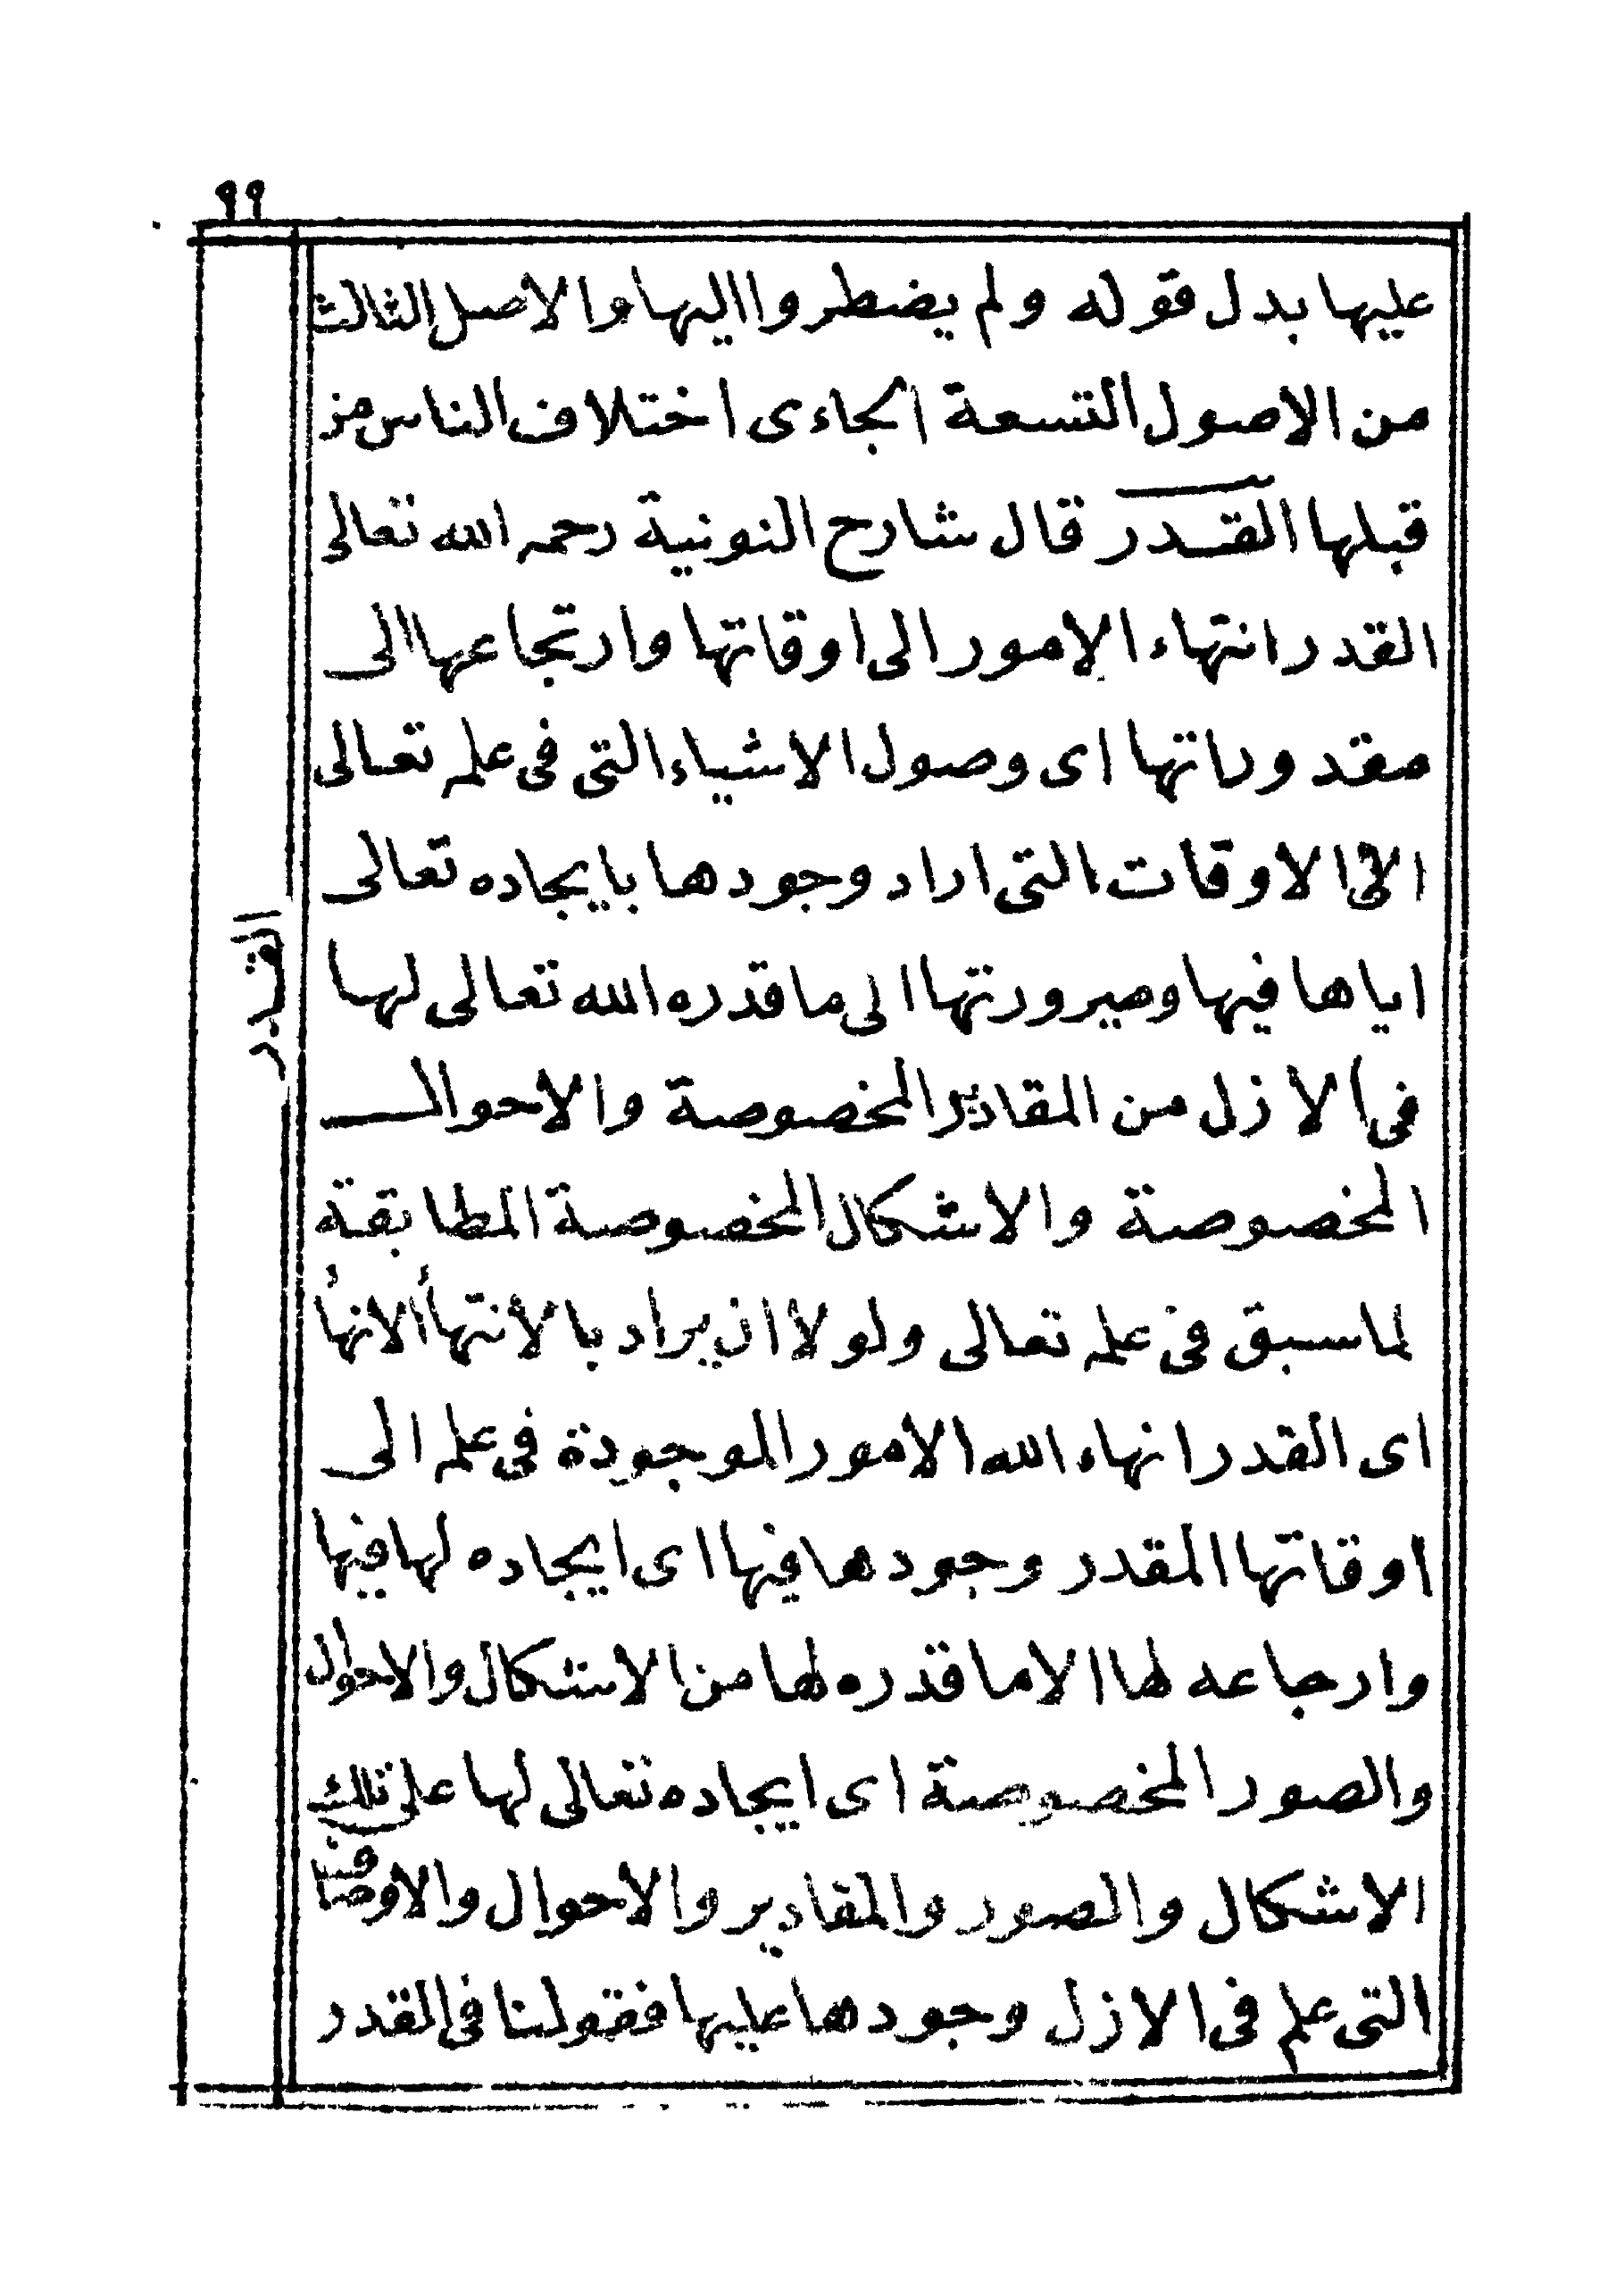 ٩٩
عليها بدل قوله ولم يضطروا اليها والاصل الثالث
من الاصول التسعة الجاءى اختلاف الناس من
قبلها القدر قال شارح النونية رحمه الله تعالى
القدر انتهاء الامور الى اوقاتها وارتجاعها الى
مقدوراتها اى وصول الاشياء التى فى علمه تعالى
الى الاوقات التى اراد وجودها بايجاده تعالى
اياها فيها وصيرورتها الى ما قدره الله تعالى لها
فى الازل من المقادير المخصوصة والاحوال
المخصوصة والاشكال المخصوصة المطابقة
لما سبق فى علمه تعالى ولولا ان يراد بالأنتهأ الانهأ
اى القدر انهاء الله الامور الموجودة فى علمه الى
اوقاتها المقدر وجودها فيها اى ايجاده لها فيها
وارجاعه لها الا ما قدره لها من الاشكال والاحوال
والصور المخصوصة اى ايجاده تعالى لها على تلك
الاشكال والصور والمقادير والاحوال والاوصاف
التى علم فى الازل وجودها عليها فقولنا فى القدر
القدر